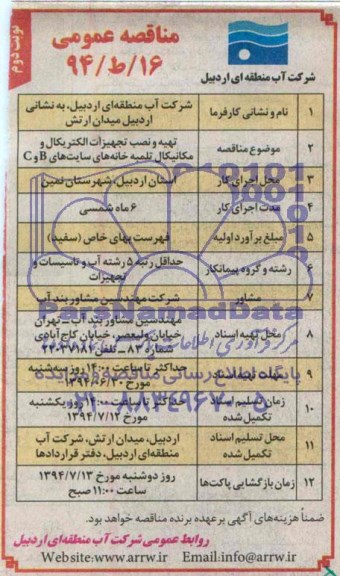 نوبت دوم
مناقصه عمومی
۹۴/ط/۱۶
شرکت آب منطقه ای اردبیل
۱ نام و نشانی کارفرما شرکت آب منطقه‌ای اردبیل، به نشانی
اردبیل میدان ارتش
۲ موضوع مناقصه تهیه و نصب تجهیزات الکتریکال و
مکانیکال تلمبه خانه‌های سایت‌های B و C
۳ محل اجرای کار استان اردبیل، شهرستان نمین
۴ مدت اجرای کار ۶ ماه شمسی
۵ مبلغ برآورد اولیه فهرست بهای خاص (سفید)
۶ رشته و گروه پیمانکار حداقل رتبه ۵ رشته آب و تاسیسات و
تجهیزات
۷ مشاور شرکت مهندسین مشاور بند آب
۸ محل تهیه اسناد مهندسین مشاور بند آب - تهران
خیابان ولیعصر، خیابان کاج آبادی
شماره ۸۳ - تلفن
۹ مهلت تهیه اسناد حداکثر تا ساعت ۱۴:۰۰ روز سه‌شنبه
مورخ
۱۰ زمان تسلیم اسناد
تکمیل شده حداکثر تا ساعت ۱۴:۰۰ روز یکشنبه
مورخ ۱۳۹۴/۷/۱۲
۱۱ محل تسلیم اسناد
تکمیل شده اردبیل، میدان ارتش، شرکت آب
منطقه‌ای اردبیل، دفتر قراردادها
۱۲ زمان بازگشایی پاکت‌ها روز دوشنبه مورخ ۱۳۹۴/۷/۱۳
ساعت ۱۱:۰۰ صبح
ضمناً هزینه‌های آگهی بر عهده برنده مناقصه خواهد بود.
روابط عمومی شرکت آب منطقه‌ای اردبیل
Website:www.arrw.ir Email:info@arrw.ir
ParsNamadData
پایگاه اطلاع رسانی مناقصه و مزایده